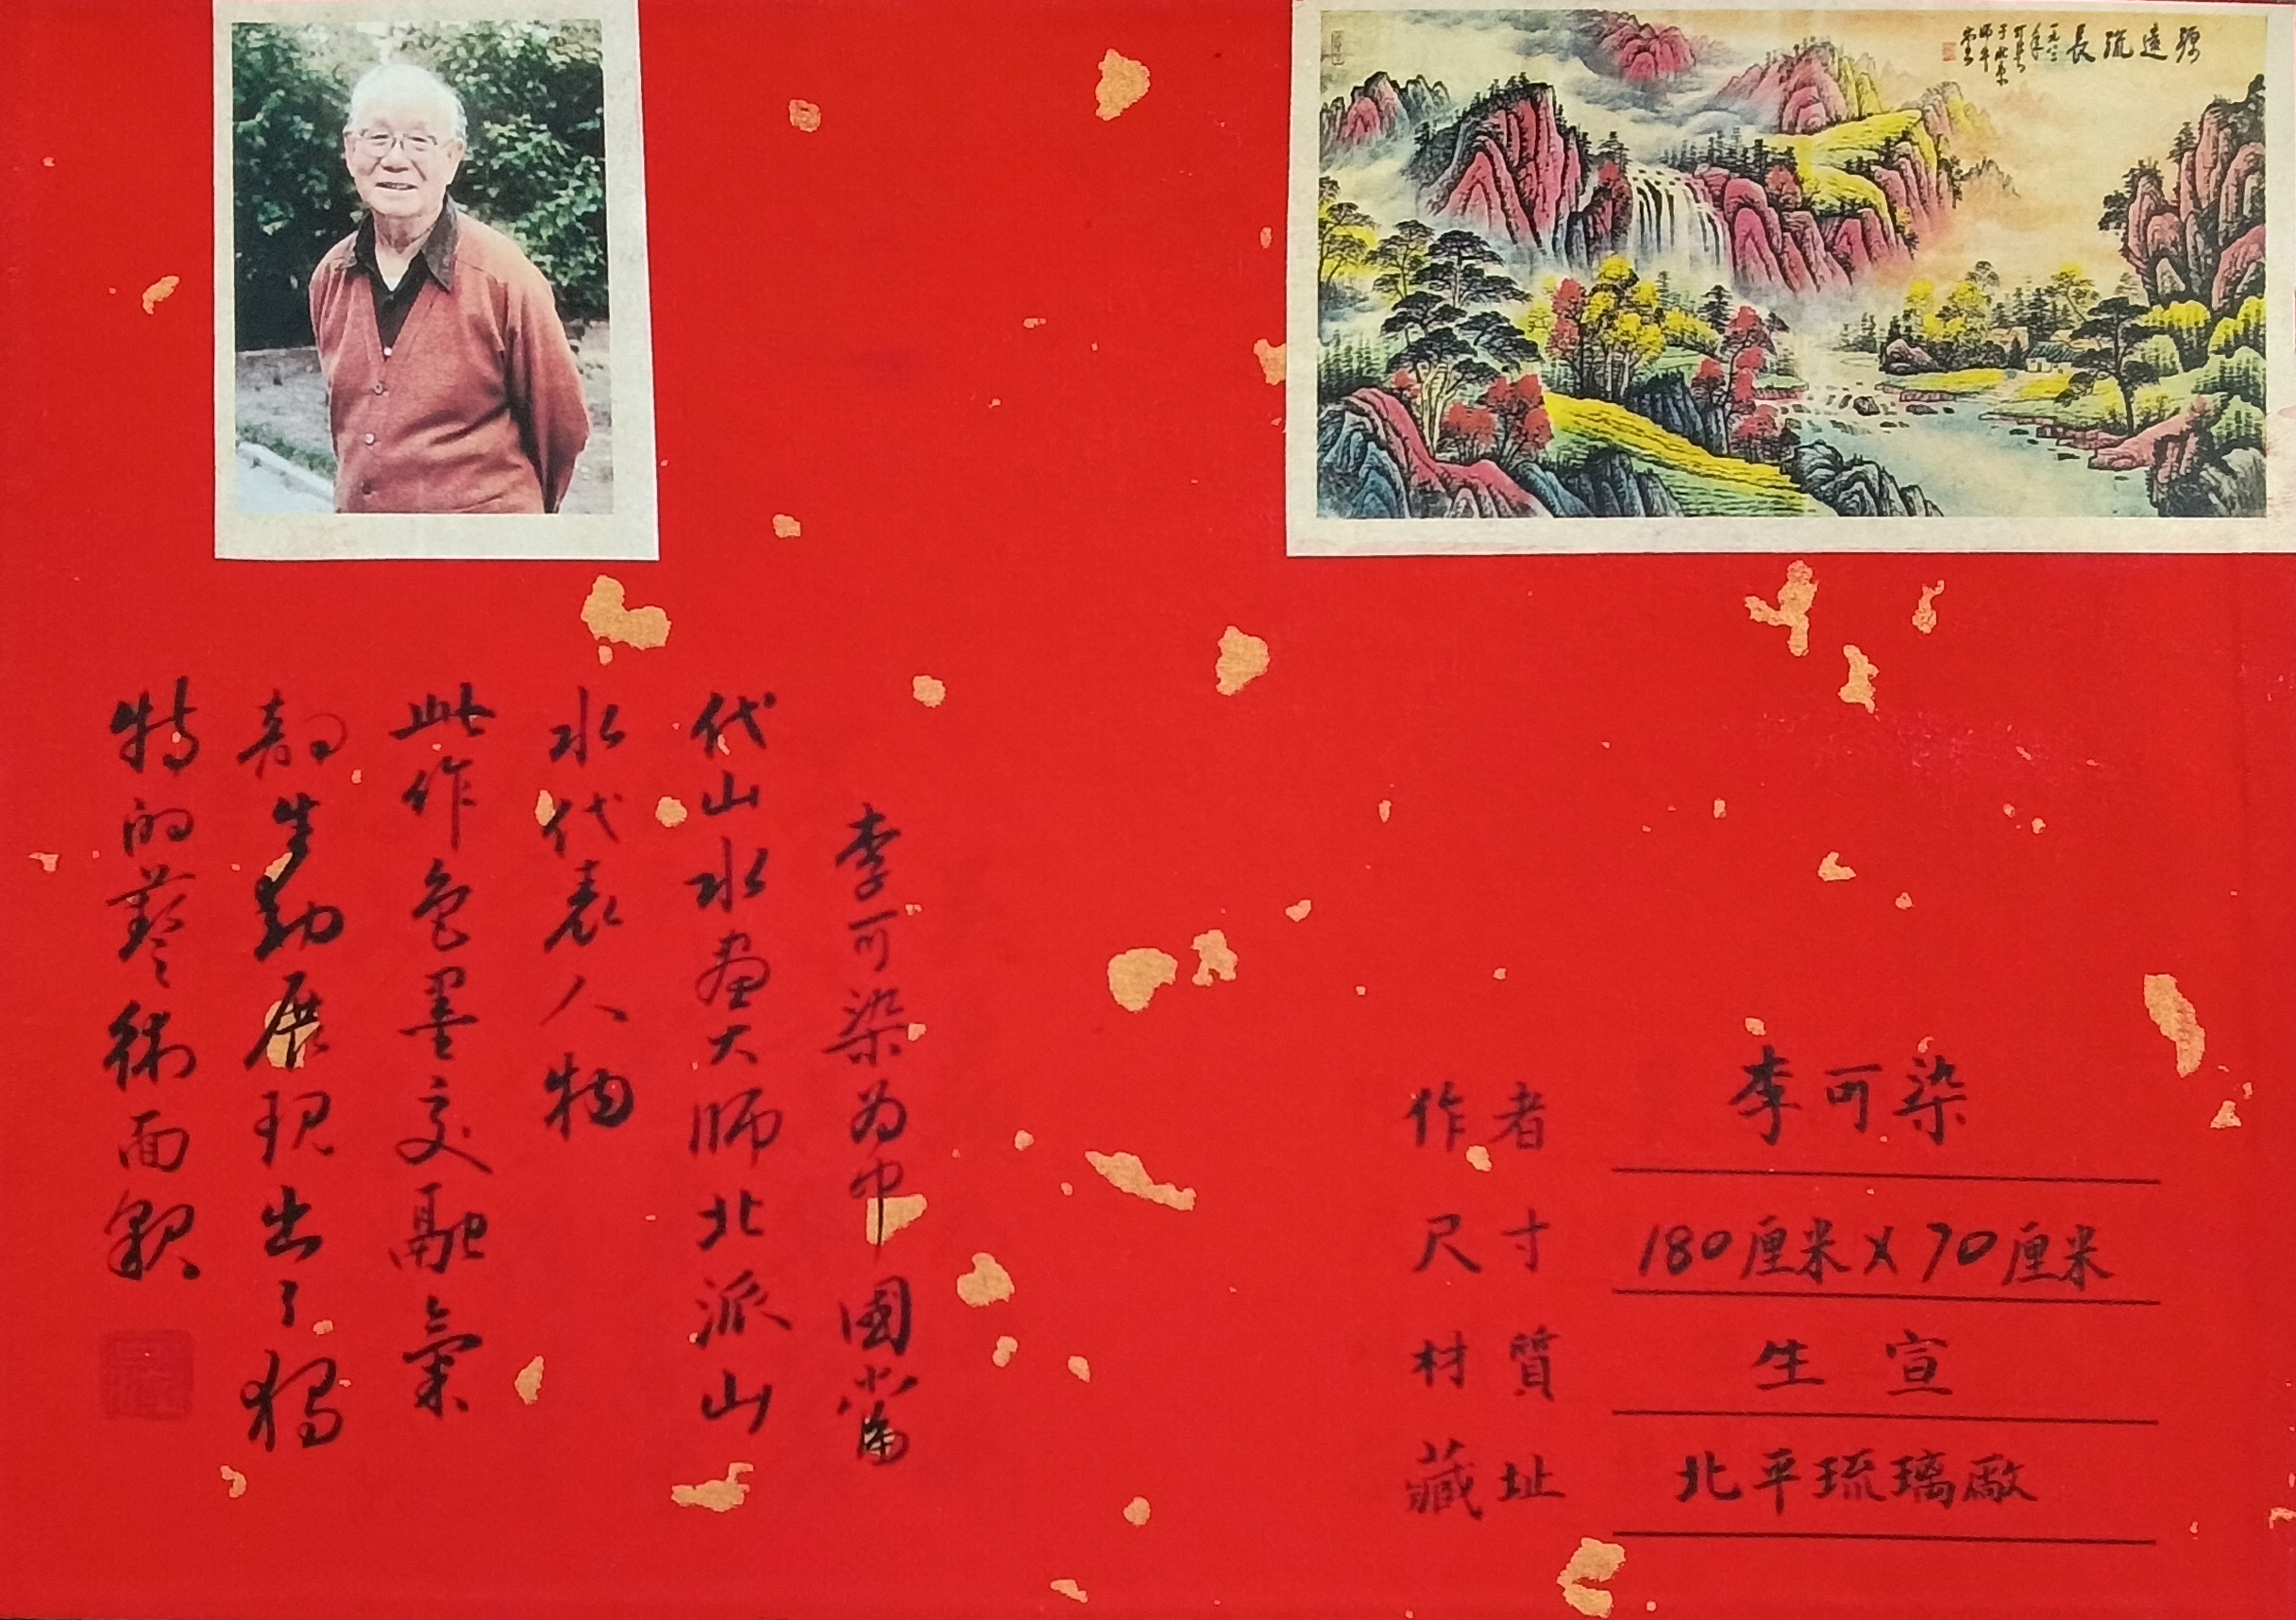 源遠流長
李可染為中國當
代山水畫大師北派山
水代表人物
此作色墨交融氣
韵生動展現出了獨
特的藝術面貌
作者 李可染
尺寸 180厘米X70厘米
材質 生宣
藏址 北平琉璃廠